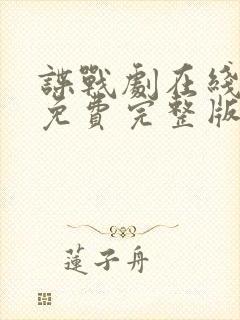 諜戰劇在綫
免費完整版
蓮子舟